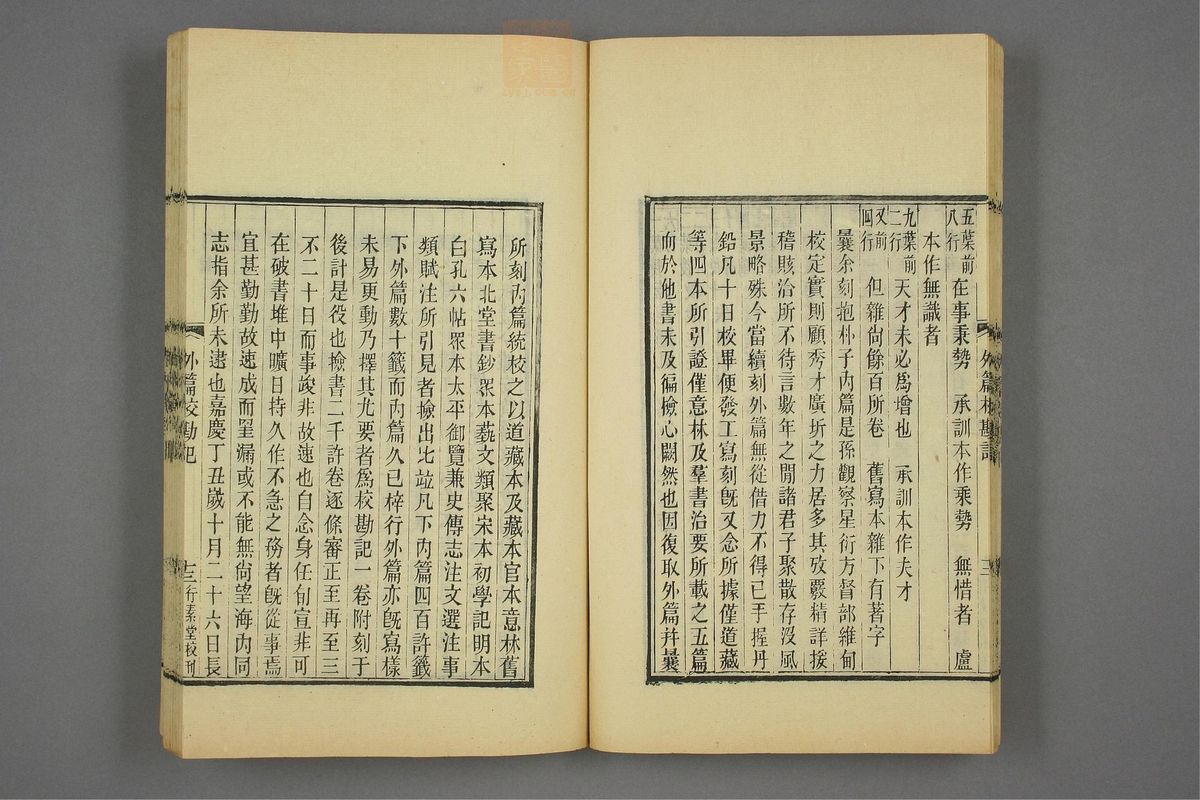 五葉前八行　在事秉勢　承訓本作乘勢　無惜者　盧
本作無識者
九葉前二行　天才未必為增也　承訓本作夫才
又前四行　但雜尙餘百所卷　舊寫本雜下有著字
曩余刻抱朴子內篇是孫觀察星衍方督部維甸
校定實則顧秀才廣圻之力居多其攷覈精詳援
稽賅洽所不待言數年之閒諸君子聚散存沒風
景略殊今當續刻外篇無從借力不得已手握丹
鉛凡十日校畢便發工寫刻旣又念所據僅道藏
等四本所引證僅意林及羣書治要所載之五篇
而於他書未及徧檢心闕然也因復取外篇幷曩
外篇校勘記　三
所刻內篇統校之以道藏本及藏本官本意林舊
寫本北堂書鈔眾本藝文類聚宋本初學記明本
白孔六帖眾本太平御覽兼史傳志注文選注事
類賦注所引見者檢出比竝凡下內篇四百許籤
下外篇數十籤而內篇久已梓行外篇亦旣寫樣
未易更動乃擇其尤要者為校勘記一卷附刻于
後計是役也檢書二千許卷逐條審正至再至三
不二十日而事竣非故速也自念身任旬宣非可
在破書堆中曠日持久作不急之務者旣從事焉
宜甚勤勤故速成而罣漏或不能無尙望海內同
志指余所未逮也嘉慶丁丑歲十月二十六日長
外篇校勘記　三　行素堂校刊